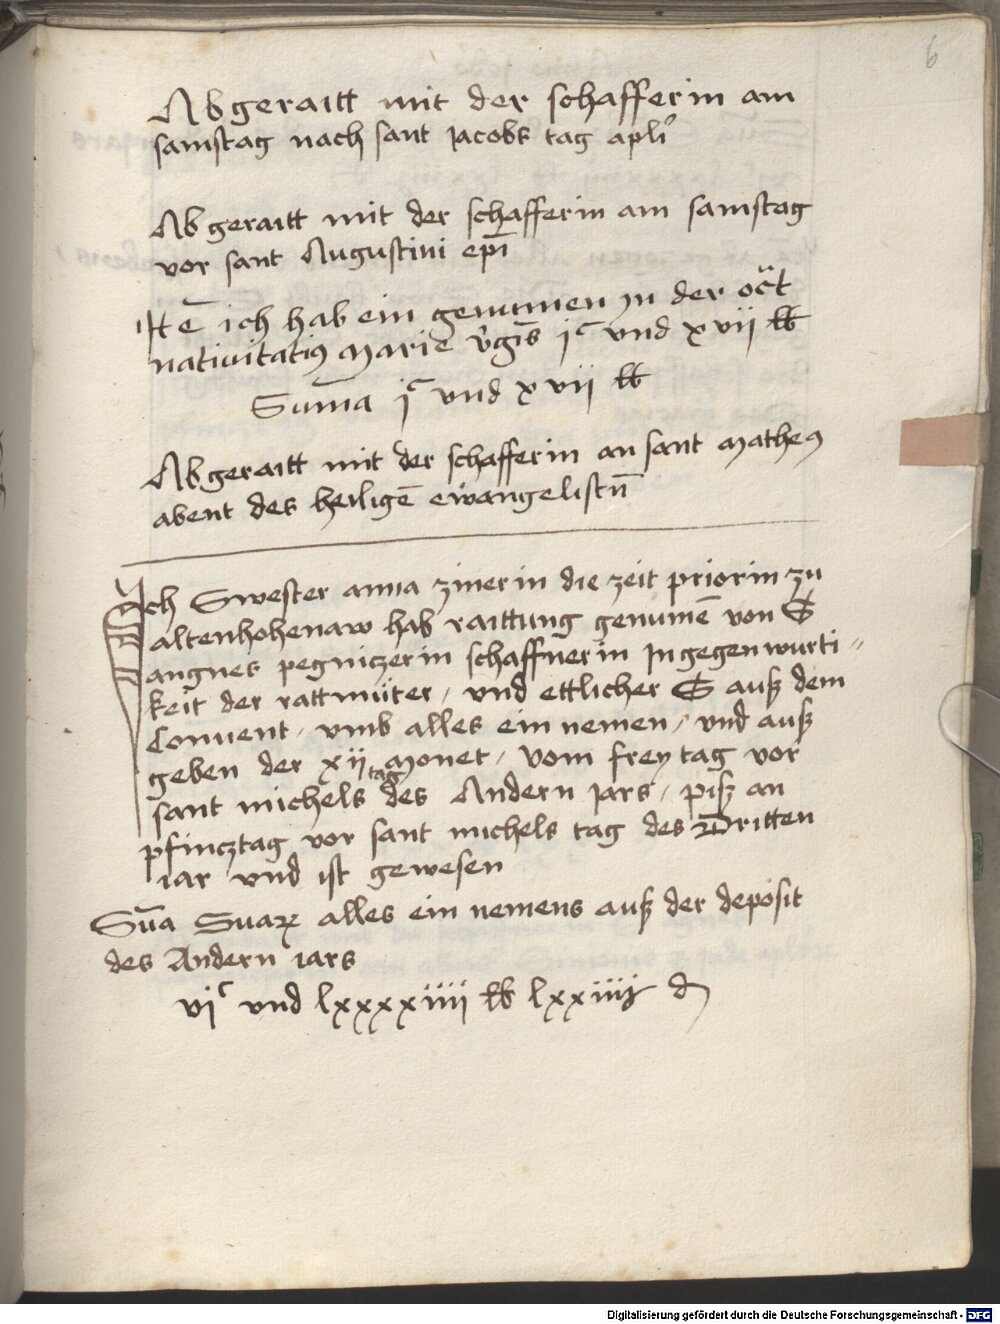 6
Abgeraitt mit der schafferin am
samstag nach sant Jacobs tag apli
Abgeraitt mit der schafferin am samstag
vor sant Augustini epi
Itē ich hab ein genumen in der oct
nativitatis marie vgis jc und xvii lb
Suma jc und xvii lb
Abgeraitt mit der schafferin an sant matheus
abent des heiligē ewangelistn
Ich Swester anna zinerin die zeit priorin zu
altenhohenaw hab raittung genumē von S
angnes pegniczerin schaffnerin In gegenwurti-
keit der rattmüter, und ettlicher S auß dem
Convent, umb alles ein nemen, und auß
geben der xij monet, vom freytag vor
sant michels tag des Andern jars, piß an
pfincztag vor sant michels tag des Dritten
iar und ist gewesen
Sūa Suaꝝ alles ein nemens auß der deposit
des Andern iars
vjc und lxxxxiiii lb lxxiiij d
Digitalisierung gefördert durch die Deutsche Forschungsgemeinschaft - DFG